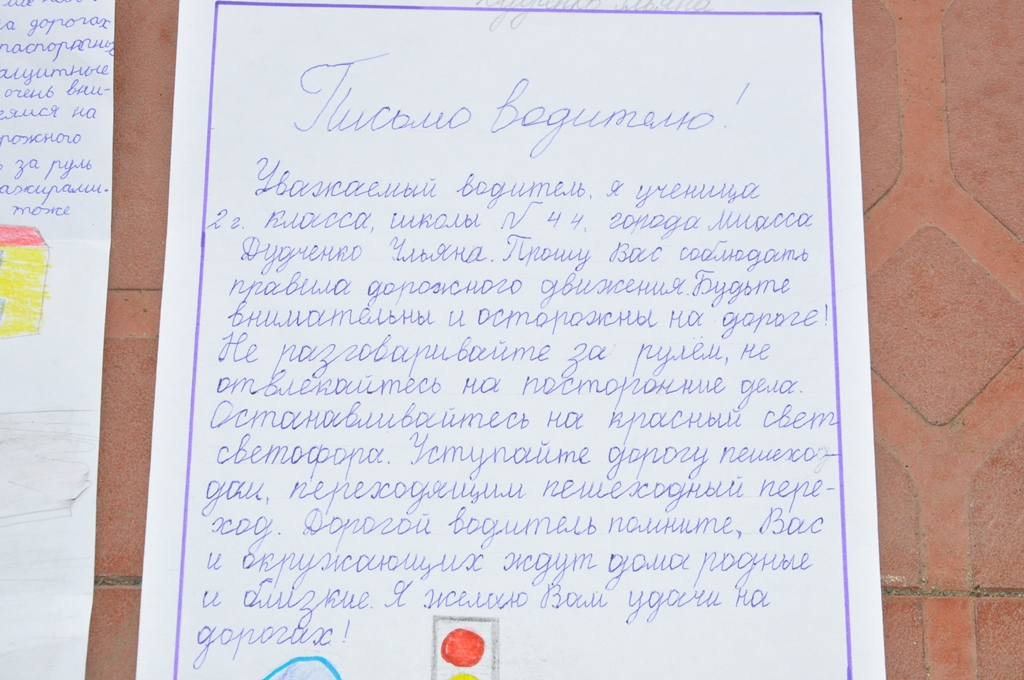 на дорогах
защитные
очень вни-
на
рожного
за руль
тоже
Письмо водителю!
Уважаемый водитель, я ученица
2 г. класса, школы № 44, города Миасса
Дудченко Ульяна. Прошу Вас соблюдать
правила дорожного движения. Будьте
внимательны и осторожны на дороге!
Не разговаривайте за рулём, не
отвлекайтесь на посторонние дела.
Останавливайтесь на красный свет
светофора. Уступайте дорогу пешехо-
дам, переходящим пешеходный пере-
ход. Дорогой водитель помните, Вас
и окружающих ждут дома родные
и близкие. Я желаю Вам удачи на
дорогах!